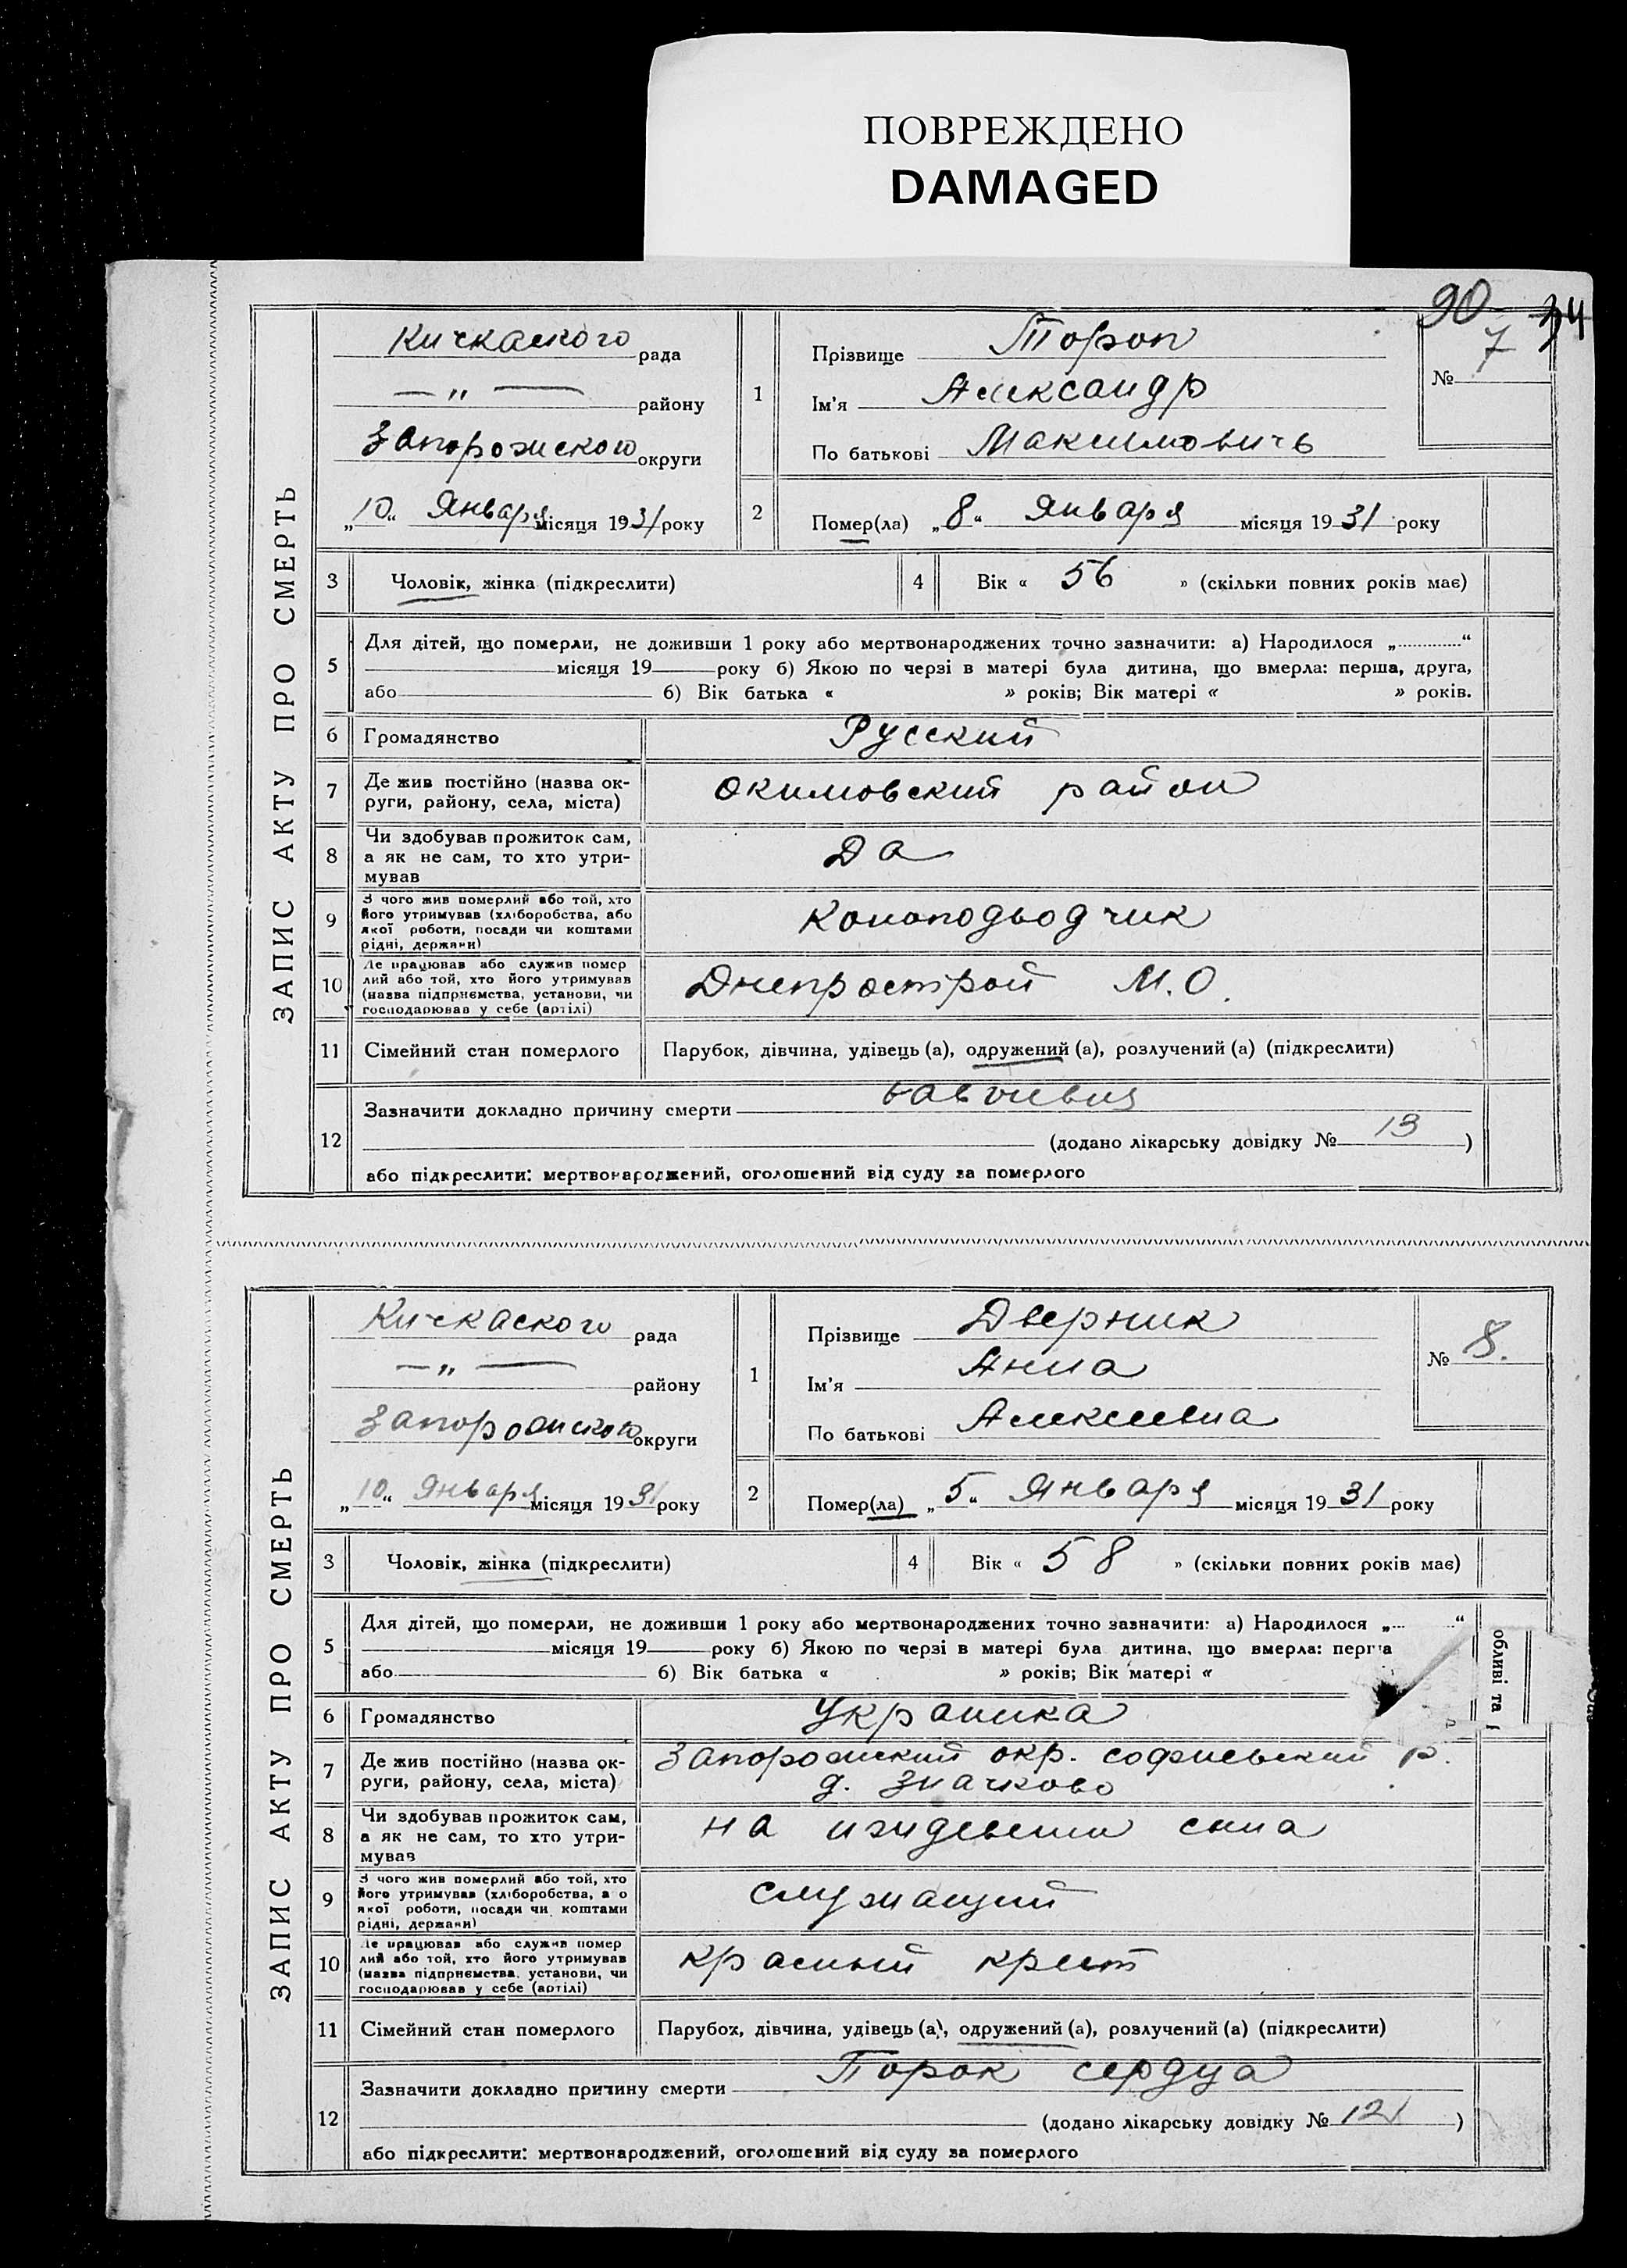 ПОВРЕЖДЕНО
DAMAGED
90
ЗАПИС АКТУ ПРО СМЕРТЬ
Кичкаского рада
— „ — району
Запорожского округи
„10“ Января місяця 1931 року
1
Прізвище Тороп
Ім'я Александр
По батькові Максимовичь
№ 7
2
Помер(ла) „8“ Января місяця 1931 року
3 Чоловік, жінка (підкреслити)
4 Вік « 56 » (скільки повних років має)
5 Для дітей, що померли, не доживши 1 року або мертвонароджених точно зазначити: а) Народилося „ “
місяця 19 року б) Якою по черзі в матері була дитина, що вмерла: перша, друга,
або б) Вік батька « » років; Вік матері « » років.
6 Громадянство Русский
7 Де жив постійно (назва ок-
руги, району, села, міста) Окимовский район
8 Чи здобував прожиток сам,
а як не сам, то хто утри-
мував Да
9 З чого жив померлий або той, хто
його утримував (хліборобства, або
якої роботи, посади чи коштами
рідні, держави)
10 Де працював або служив помер
лий або той, хто його утримував
(назва підприємства, установи, чи
господарював у себе (артілі) Днепрострой М.О.
11 Сімейний стан померлого Парубок, дівчина, удівець (а), одружений (а), розлучений (а) (підкреслити)
12 Зазначити докладно причину смерти
(додано лікарську довідку № 13 )
або підкреслити: мертвонароджений, оголошений від суду за померлого
ЗАПИС АКТУ ПРО СМЕРТЬ
Кичкаского рада
— „ — району
Запорожского округи
„10“ Января місяця 1931 року
1
Прізвище Дверник
Ім'я Анна
По батькові Алексеевна
№ 8.
2
Помер(ла) „5“ Января місяця 1931 року
3 Чоловік, жінка (підкреслити)
4 Вік « 58 » (скільки повних років має)
5 Для дітей, що померли, не доживши 1 року або мертвонароджених точно зазначити: а) Народилося „ “
місяця 19 року б) Якою по черзі в матері була дитина, що вмерла: перша
або б) Вік батька « » років; Вік матері «
обливі та
6 Громадянство Украинка
7 Де жив постійно (назва ок-
руги, району, села, міста) Запорожский окр. софиевский р.
д. Значково
8 Чи здобував прожиток сам,
а як не сам, то хто утри-
мував на иждевении сина
9 З чого жив померлий або той, хто
його утримував (хліборобства, а о
якої роботи, посади чи коштами
рідні, держави) служащий
10 Де працював або служив помер
лий або той, хто його утримував
(назва підприємства, установи, чи
господарював у себе (артілі) красный крест
11 Сімейний стан померлого Парубок, дівчина, удівець (а), одружений (а), розлучений (а) (підкреслити)
12 Зазначити докладно причину смерти Порок сердца
(додано лікарську довідку № )
або підкреслити: мертвонароджений, оголошений від суду за померлого